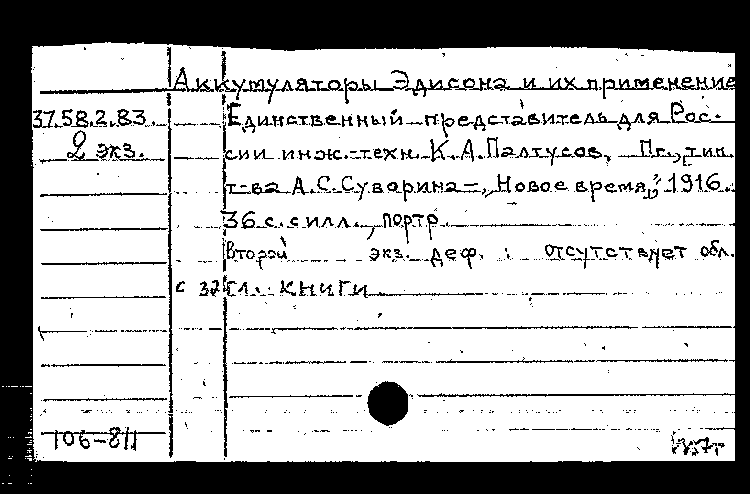 Аккумуляторы Эдисона и их применение
37.58.2.83. Единственный представитель для Рос-
2 экз. сии инж.-техн. К.А.Палтусов, Пг., тип.
т-ва А.С.Суворина-„Новое время", 1916.
36 с. с илл., портр.
Второй экз. деф.: отсутствует обл.
гл. книги
106-811